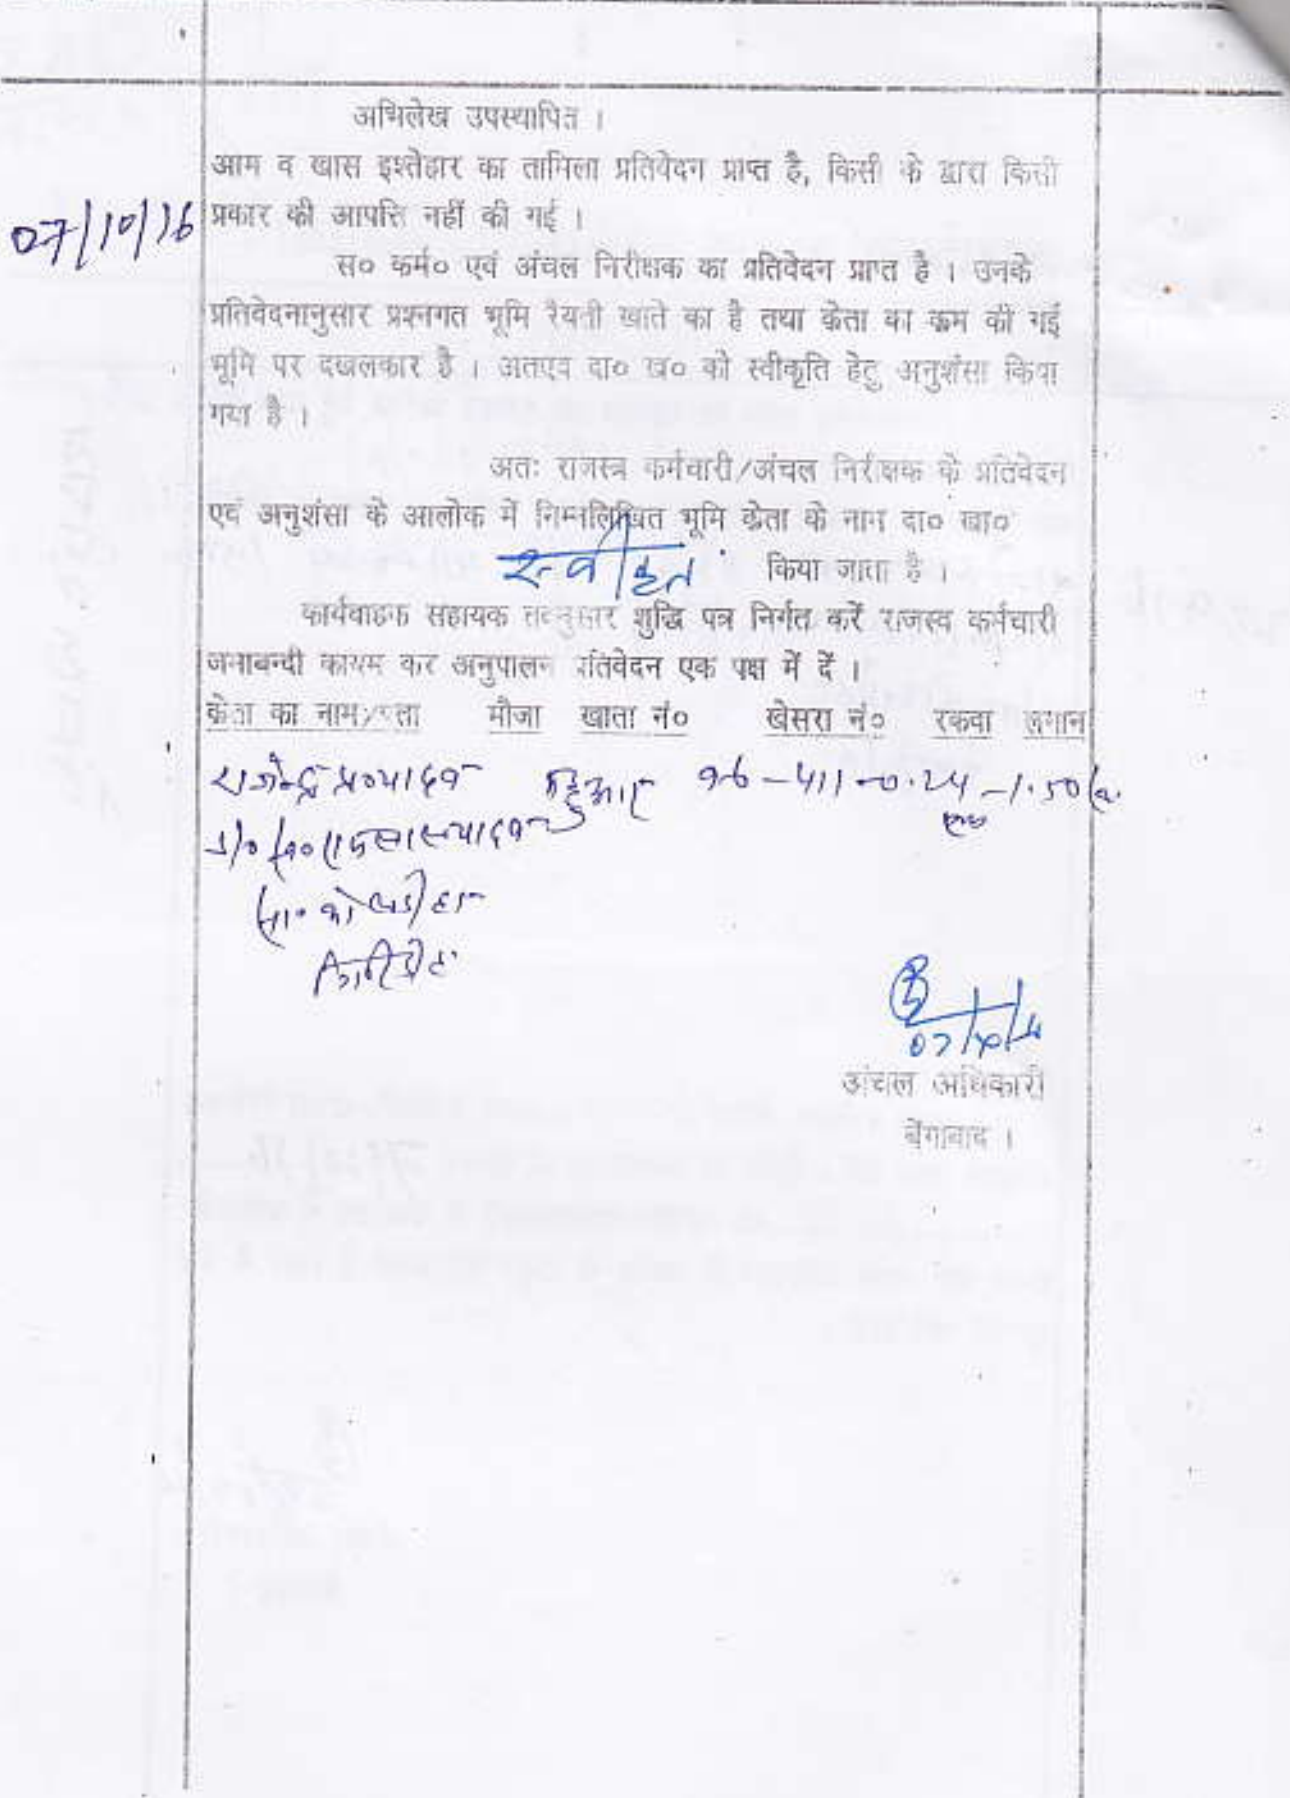 अभिलेख उपस्थापित ।
आम व खास इश्तेहार का तामिला प्रतिवेदन प्राप्त है, किसी के द्वारा किसी
07/10/16
प्रकार की आपत्ति नहीं की गई ।
स० कर्म० एवं अंचल निरीक्षक का प्रतिवेदन प्राप्त है । उनके
प्रतिवेदनानुसार प्रश्नगत भूमि रैयती खाते का है तथा क्रेता का क्रम की गई
भूमि पर दखलकार है । अतएव दा० ख० को स्वीकृति हेतु अनुशंसा किया
गया है ।
अतः राजस्व कर्मचारी/अंचल निरीक्षक के प्रतिवेदन
एवं अनुशंसा के आलोक में निम्नलिखित भूमि क्रेता के नाम दा० खा०
स्वीकृत किया जाता है ।
कार्यवाहक सहायक तदनुसार शुद्धि पत्र निर्गत करें राजस्व कर्मचारी
जमाबन्दी कायम कर अनुपालन प्रतिवेदन एक पक्ष में दें ।
क्रेता का नाम/पता मौजा खाता नं० खेसरा नं० रकवा लगान
राजेन्द्र प्र० यादव 0.24 - 1.50
यादव
07/10/16
अंचल अधिकारी
बेंगाबाद ।